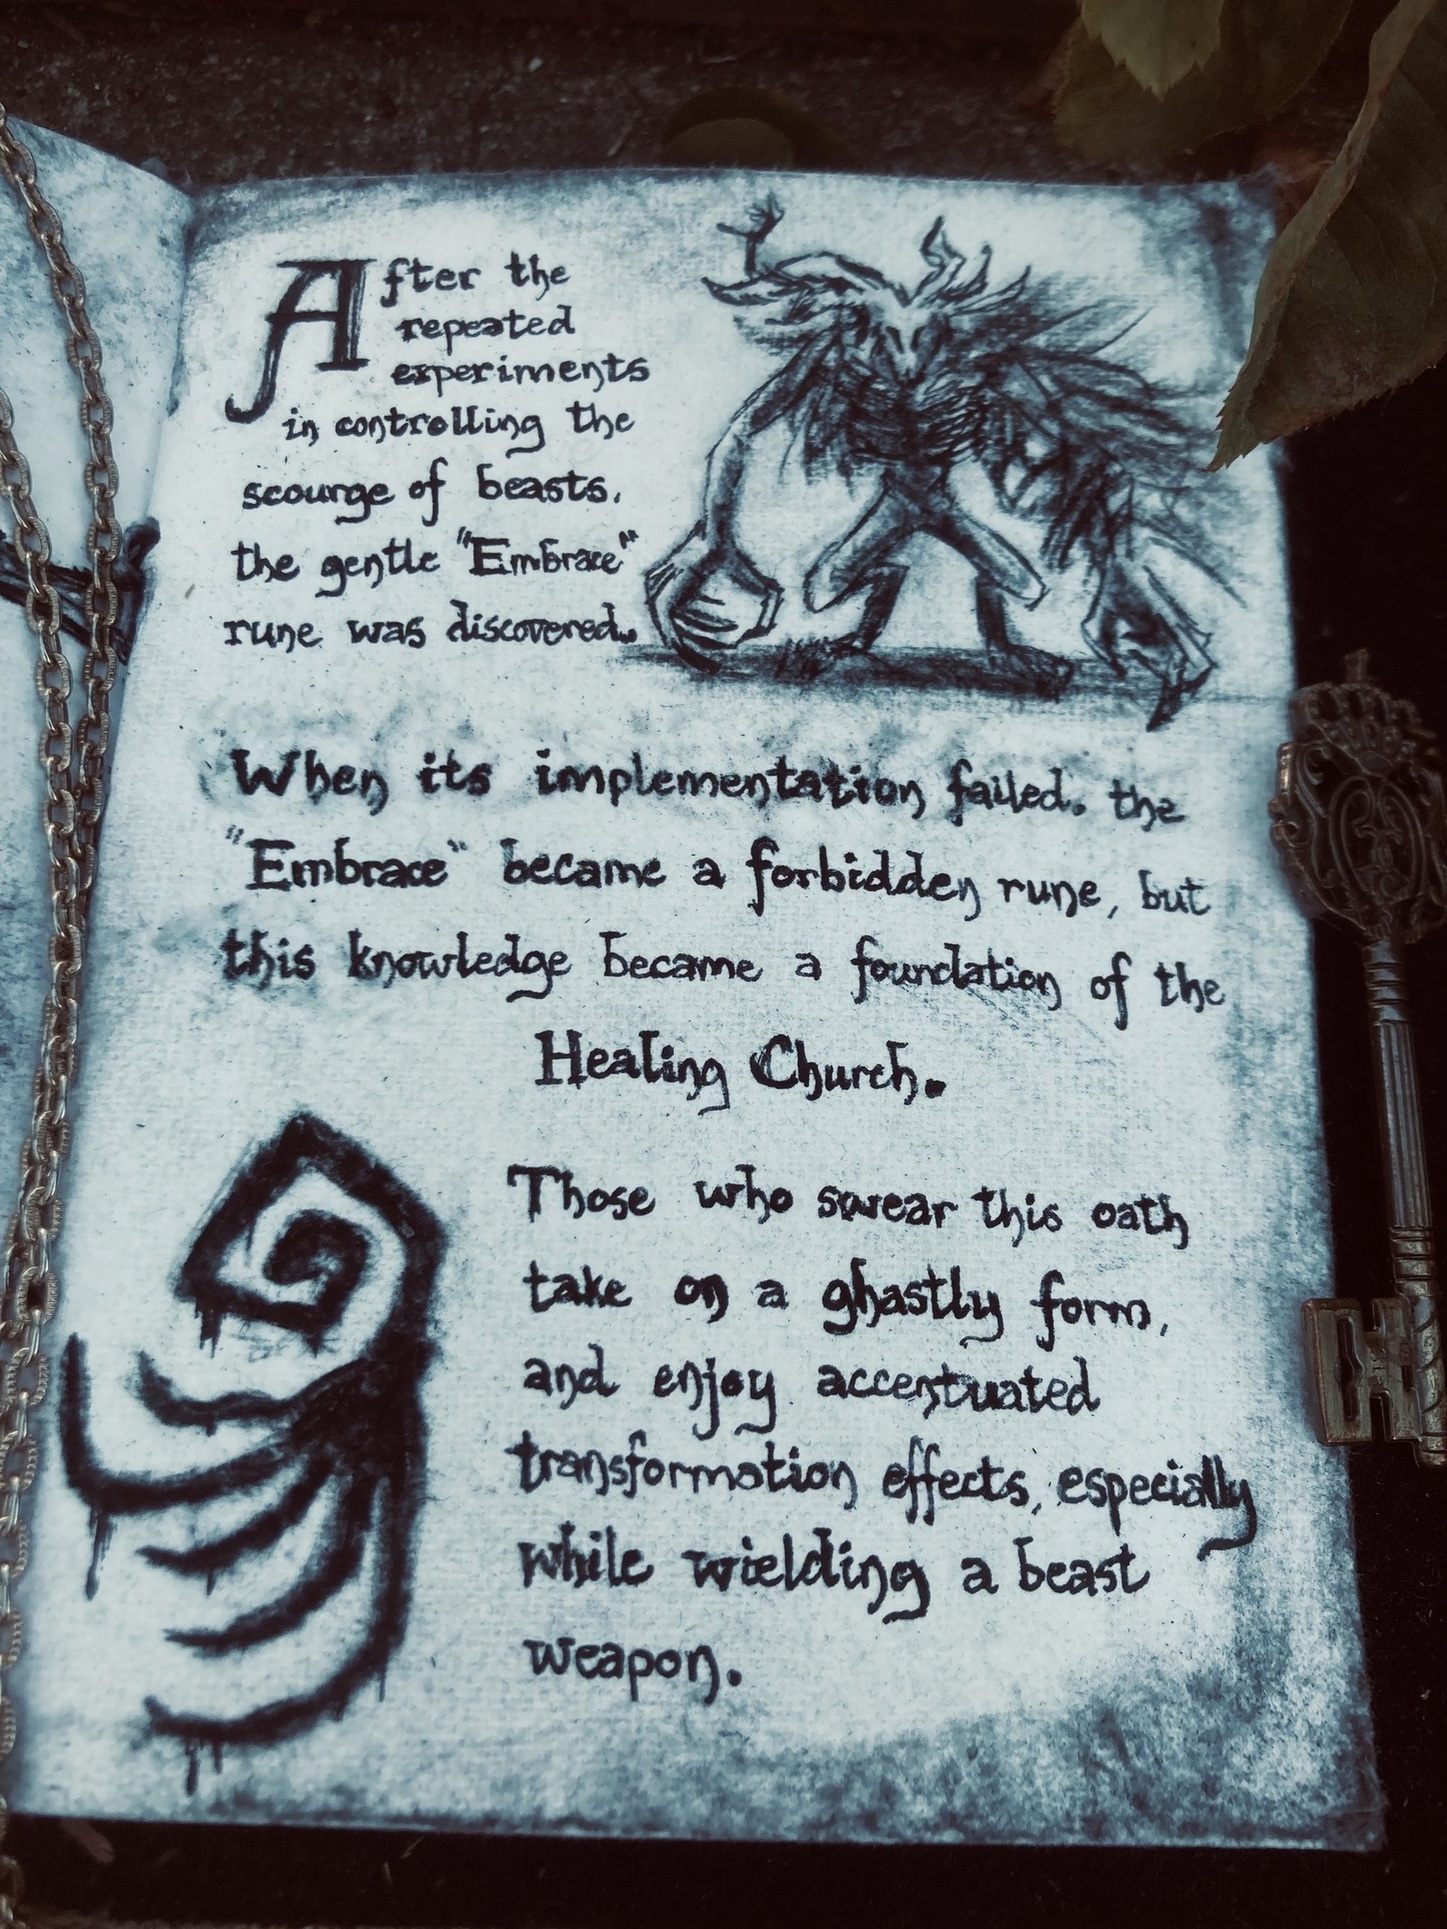 After the
repeated
experiments
in controlling the
scourge of beasts,
the gentle "Embrace"
rune was discovered...
When its implementation failed, the
"Embrace" became a forbidden rune, but
this knowledge became a foundation of the
Healing Church.
Those who swear this oath
take on a ghastly form,
and enjoy accentuated
transformation effects, especially
while wielding a beast
weapon.